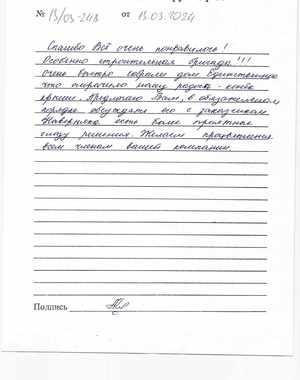 № 13/03-248 от 13.03.2024
Спасибо Всё очень понравилось!
Особенно строительная бригада!!!
очень быстро собрали дом. Единственное
что омрачило нашу радость - конёк
крыши. Предлагаю Вам, в обязательном
порядке обсуждать его с заказчиком.
Наверняка есть более приятные
глазу решения. Желаем процветания
всем членам вашей компании.
Подпись